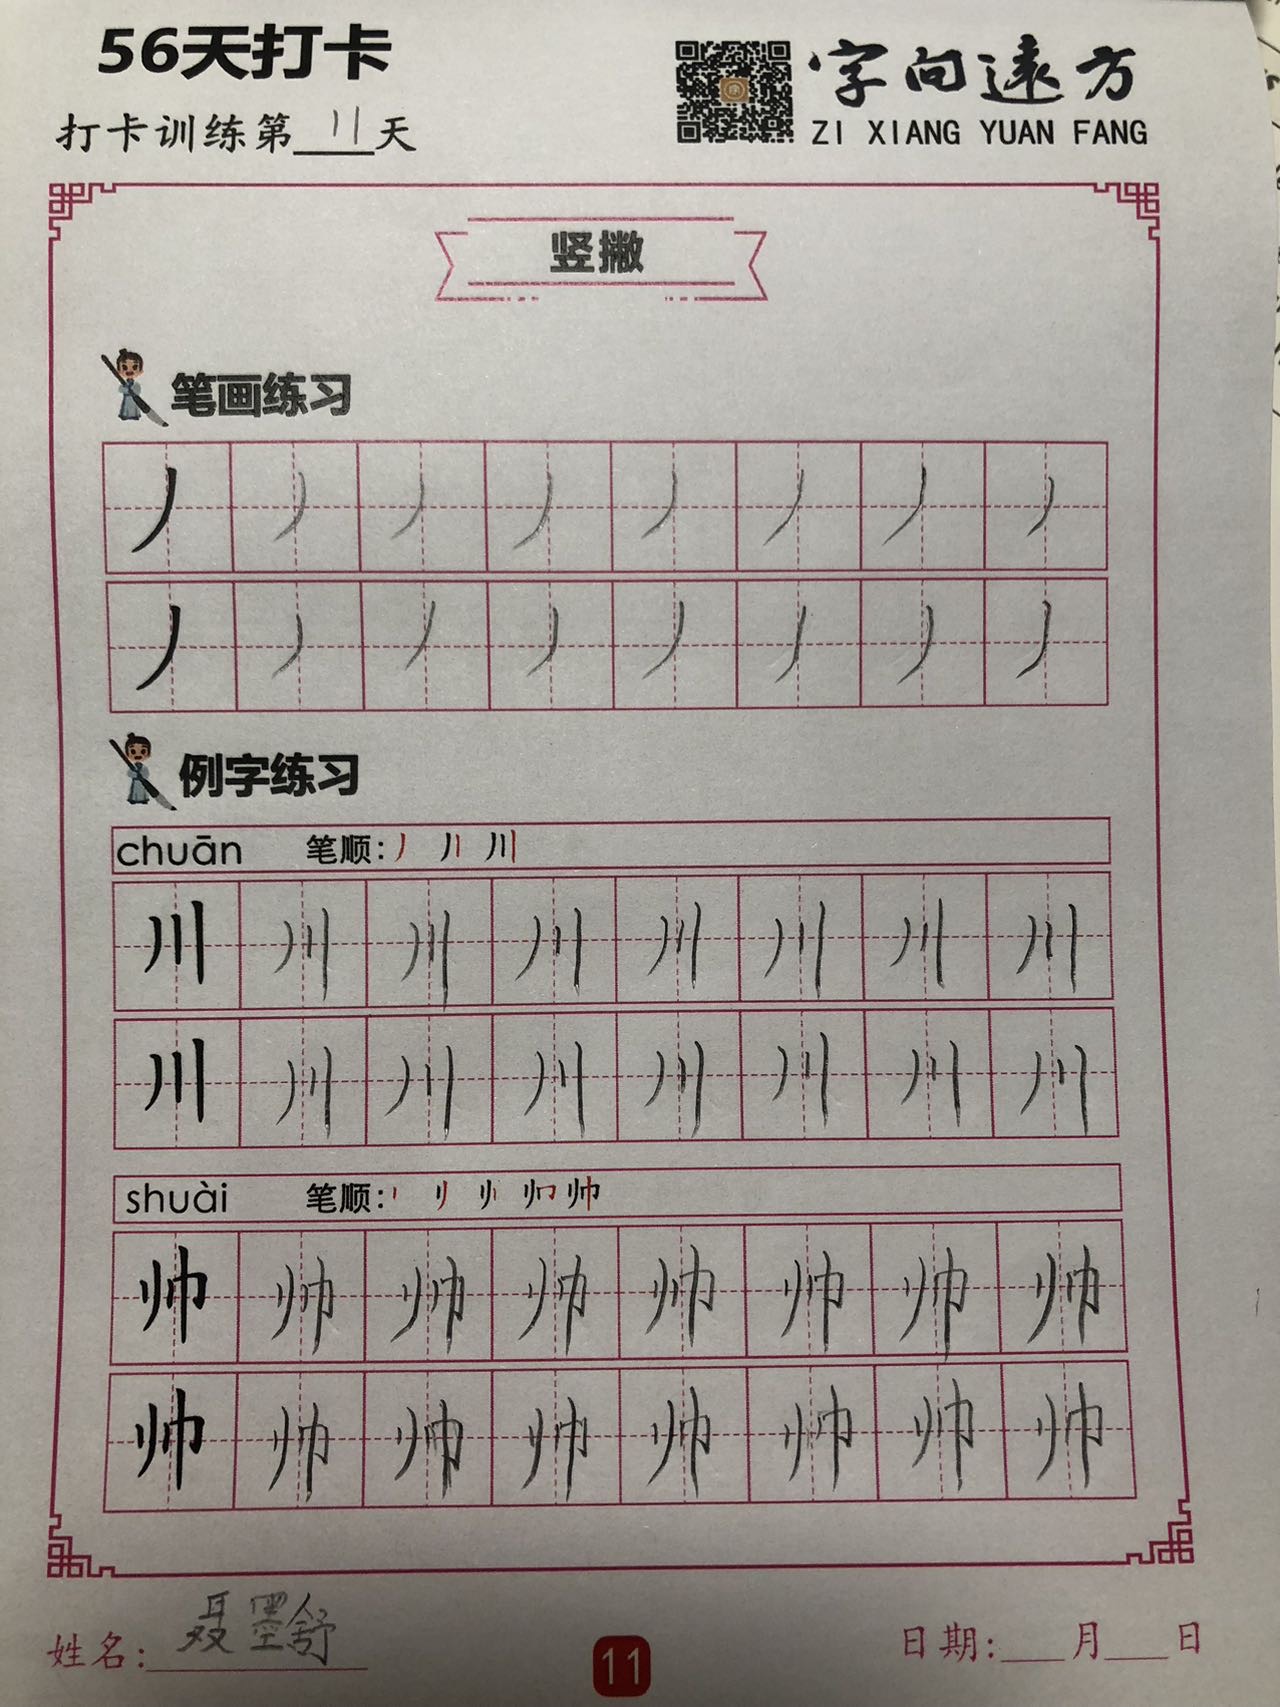 56天打卡
字向远方
打卡训练第11天
ZI XIANG YUAN FANG
竖撇
笔画练习
丿丿丿丿丿丿丿丿
丿丿丿丿丿丿丿丿
例字练习
chuān 笔顺: 丿 丿丨 川
川川川川川川川川
川川川川川川川川
shuài 笔顺: 帅
帅帅帅帅帅帅帅帅
帅帅帅帅帅帅帅帅
姓名: 聂墨舒
11
日期:___月___日